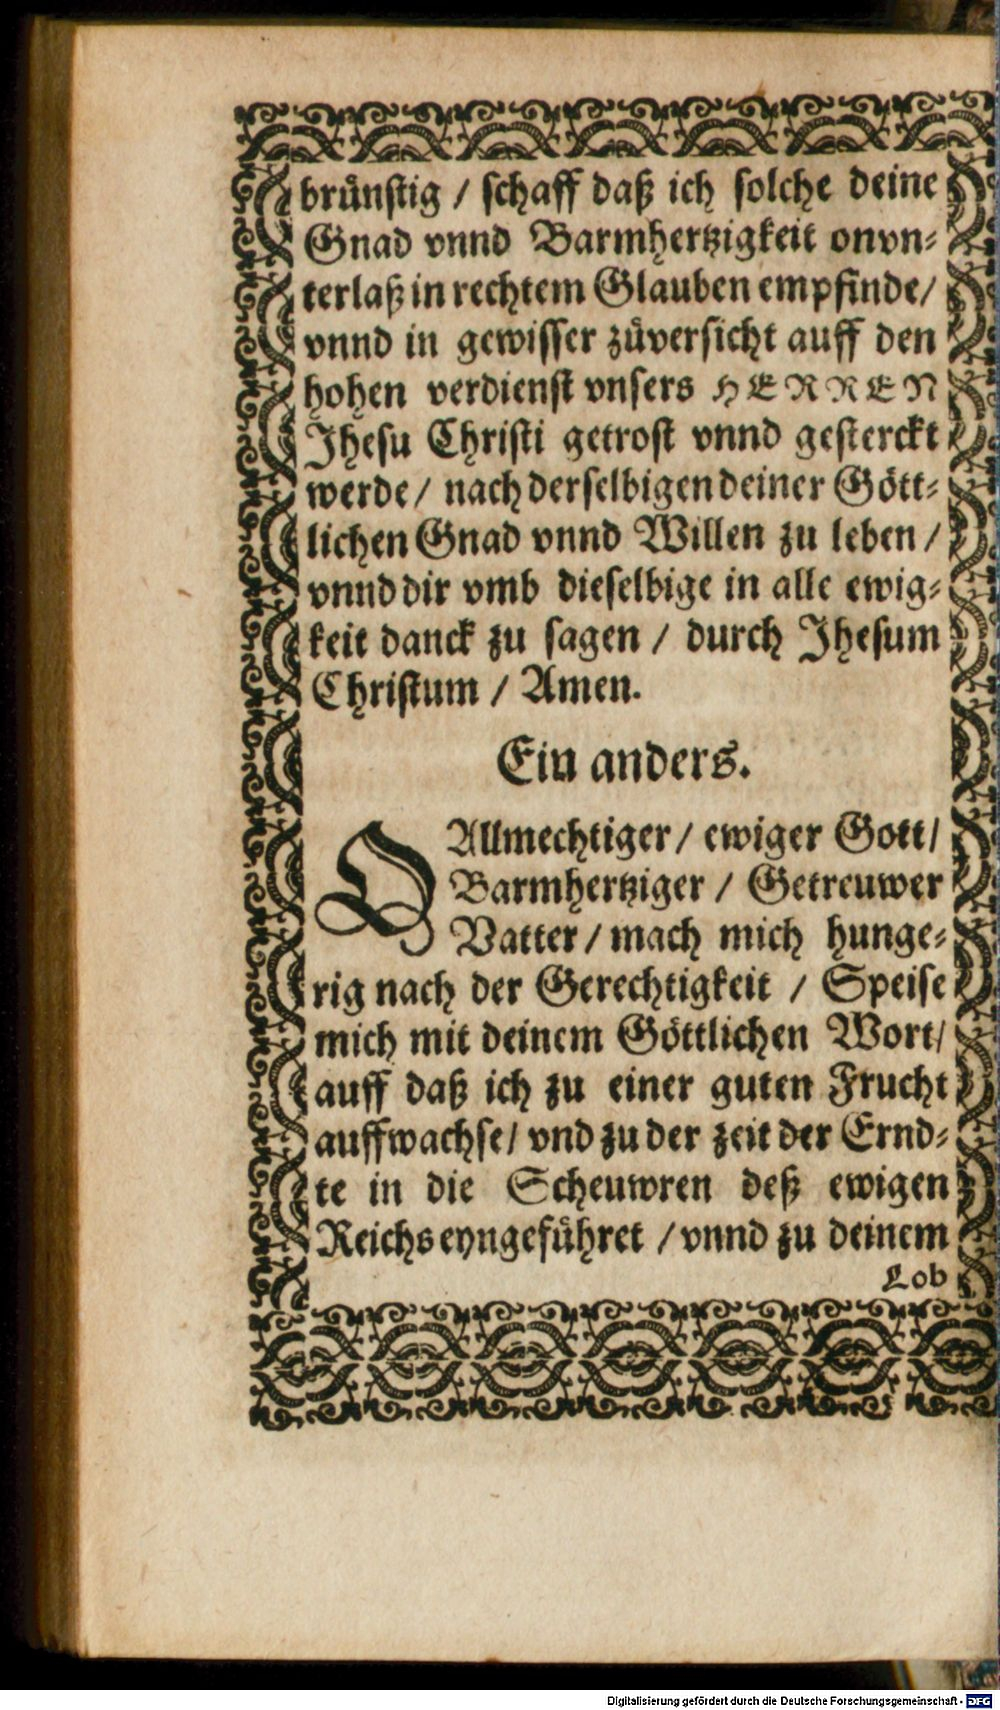 brünstig / schaff daß ich solche deine
Gnad vnnd Barmhertzigkeit onvn-
terlaß in rechtem Glauben empfinde/
vnnd in gewisser züversicht auff den
hohen verdienst vnsers HERREN
Jhesu Christi getrost vnnd gesterckt
werde / nach derselbigen deiner Gött-
lichen Gnad vnnd Willen zu leben /
vnnd dir vmb dieselbige in alle ewig-
keit danck zu sagen / durch Jhesum
Christum / Amen.
Ein anders.
O Allmechtiger / ewiger Gott/
Barmhertziger / Getreuwer
Vatter / mach mich hunge-
rig nach der Gerechtigkeit / Speise
mich mit deinem Göttlichen Wort/
auff daß ich zu einer guten Frucht
auffwachse / vnd zu der zeit der Ernd-
te in die Scheuwren deß ewigen
Reichs eyngeführet / vnnd zu deinem
Lob
Digitalisierung gefördert durch die Deutsche Forschungsgemeinschaft - DFG